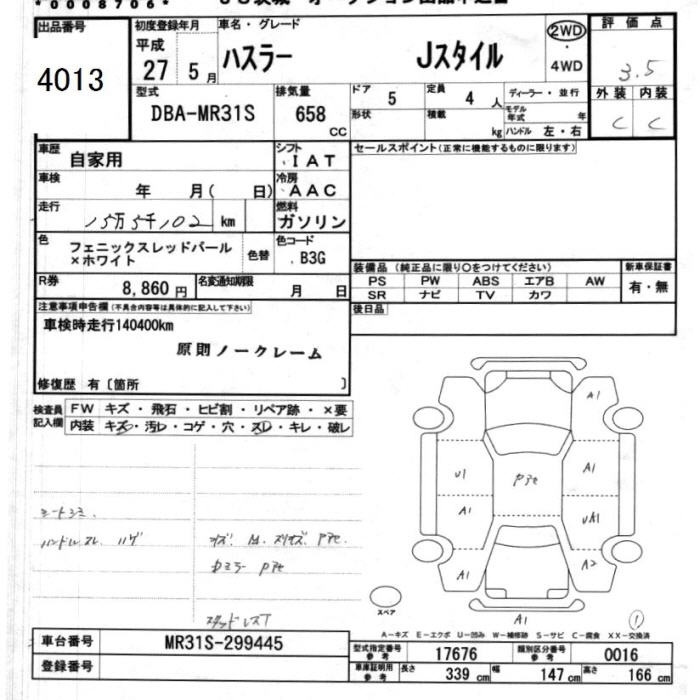 *0008706*
出品番号
4013
初度登録年月
平成
27 5 月
車名・グレード
ハスラー Jスタイル
2WD
・
4WD
評価点
3.5
外装 内装
C C
型式
DBA-MR31S
排気量
658
CC
ドア
5
定員
4 人
形状
積載
kg
ディーラー・並行
モデル年式 年
ハンドル 左・右
車歴
自家用
シフト
IAT
車検
年 月( 日)
冷房
AAC
走行
15万5千102 km
燃料
ガソリン
色
フェニックスレッドパール
×ホワイト
色替
色コード
B3G
R券
8,860円
名変通知期限
月 日
セールスポイント(正常に機能するものに限ります)
装備品(純正品に限り○をつけてください)
PS PW ABS エアB AW
SR ナビ TV カワ
新車保証書
有・無
後日品
注意事項申告欄(不具合内容等は具体的に記入して下さい)
車検時走行140400km
原則ノークレーム
修復歴 有〔箇所 〕
検査員
記入欄
FW キズ・飛石・ヒビ割・リペア跡・×要
内装 キズ・汚レ・コゲ・穴・スレ・キレ・破レ
シートシミ
ハンドルスレ ハゲ
A1
U1
Pアセ
A1
A1
UA1
A1
A2
スペア
A1
①
A-キズ E-エクボ U-凹み W-補修跡 S-サビ C-腐食 XX-交換済
車台番号
MR31S-299445
登録番号
型式指定番号
参考
17676
類別区分番号
参考
0016
車庫証明用
参考
長さ 339 cm 幅 147 cm 高さ 166 cm